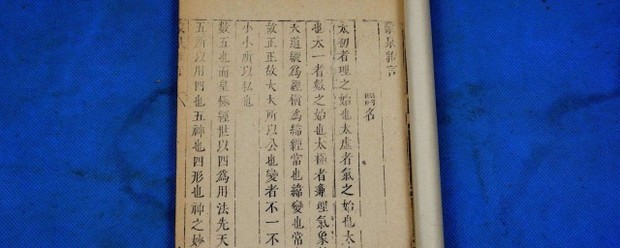 蒙泉雜言
闕名
太初者理之始也太虛者氣之始也太
也太一者數之始也太極者兼理氣象
天道縱爲經橫爲緯經常也緯變也常
故正正故大大所以公也變者不一不
小小所以私也
數五也而皇極經世以四爲用法先天
五所以用四也五神也四形也神之妙